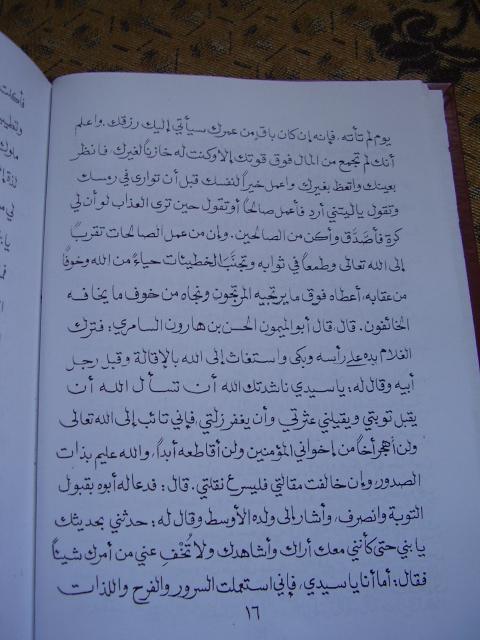 يوم لم تأته. فإنه إن كان باقٍ من عمرك سيأتي إليك رزقك. واعلم
أنك لم تجمع من المال فوق قوتك إلا وكنت له خازناً لغيرك. فانظر
بعينك واتعظ بغيرك واعمل خيراً لنفسك قبل أن توارى في رمسك
وتقول ياليتني أرد فأعمل صالحاً أو تقول حين ترى العذاب لو أن لي
كرة فأصَدَّق وأكن من الصالحين. وإن من عمل الصالحات تقرباً
إلى الله تعالى وطمعاً في ثوابه وتجنَّب الخطيئات حياءً من الله وخوفاً
من عقابه، أعطاه فوق ما يرتجيه المرتجون ونجاه من خوف ما يخافه
الخائفون. قال، قال أبو الميمون الحسن بن هارون السامري: فترك
الغلام يده على رأسه وبكى واستغاث إلى الله بالإقالة وقبل رجل
أبيه وقال له: يا سيدي ناشدتك الله أن تسأل الله أن
يقبل توبتي ويقيلني عثرتي وأن يغفر زلتي فإني تائب إلى الله تعالى
ولن أهجر أخاً من إخواني المؤمنين ولن أقاطعه أبداً، والله عليم بذات
الصدور، وإن خالفت مقالتي فليسرع نقلتي. قال: فدعا له أبوه بقبول
التوبة وانصرف. وأشار إلى ولده الأوسط وقال له: حدثني بحديثك
يا بني حتى كأنني معك أراك وأشاهدك ولا تُخْفِ عني من أمرك شيئاً
فقال: أما أنا يا سيدي، فإني استعملت السرور والفرح واللذات
١٦